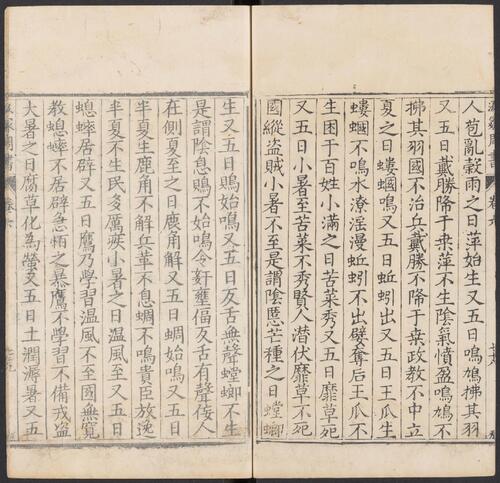 人苞亂穀雨之日萍始生又五日鳴鳩拂其羽
又五日戴勝降于桑萍不生陰氣憤盈鳴鳩不
拂其羽國不治兵戴勝不降于桑政教不中立
夏之日螻蟈鳴又五日蚯蚓出又五日王瓜生
螻蟈不鳴水潦淫漫蚯蚓不出嬖奪后王瓜不
生困于百姓小滿之日苦菜秀又五日靡草死
又五日小暑至苦菜不秀賢人潛伏靡草不死
國縱盜賊小暑不至是謂陰慝芒種之日螳螂
生又五日鵙始鳴又五日反舌無聲螳螂不生
是謂陰息鵙不始鳴令姧壅偪反舌有聲佞人
在側夏至之日鹿角解又五日蜩始鳴又五日
半夏生鹿角不解兵革不息蜩不鳴貴臣放逸
半夏不生民多厲疾小暑之日温風至又五日
蟋蟀居辟又五日鷹乃學習温風不至國無寬
教蟋蟀不居辟急恓之暴鷹不學習不備戎盜
大暑之日腐草化為螢又五日土潤溽暑又五